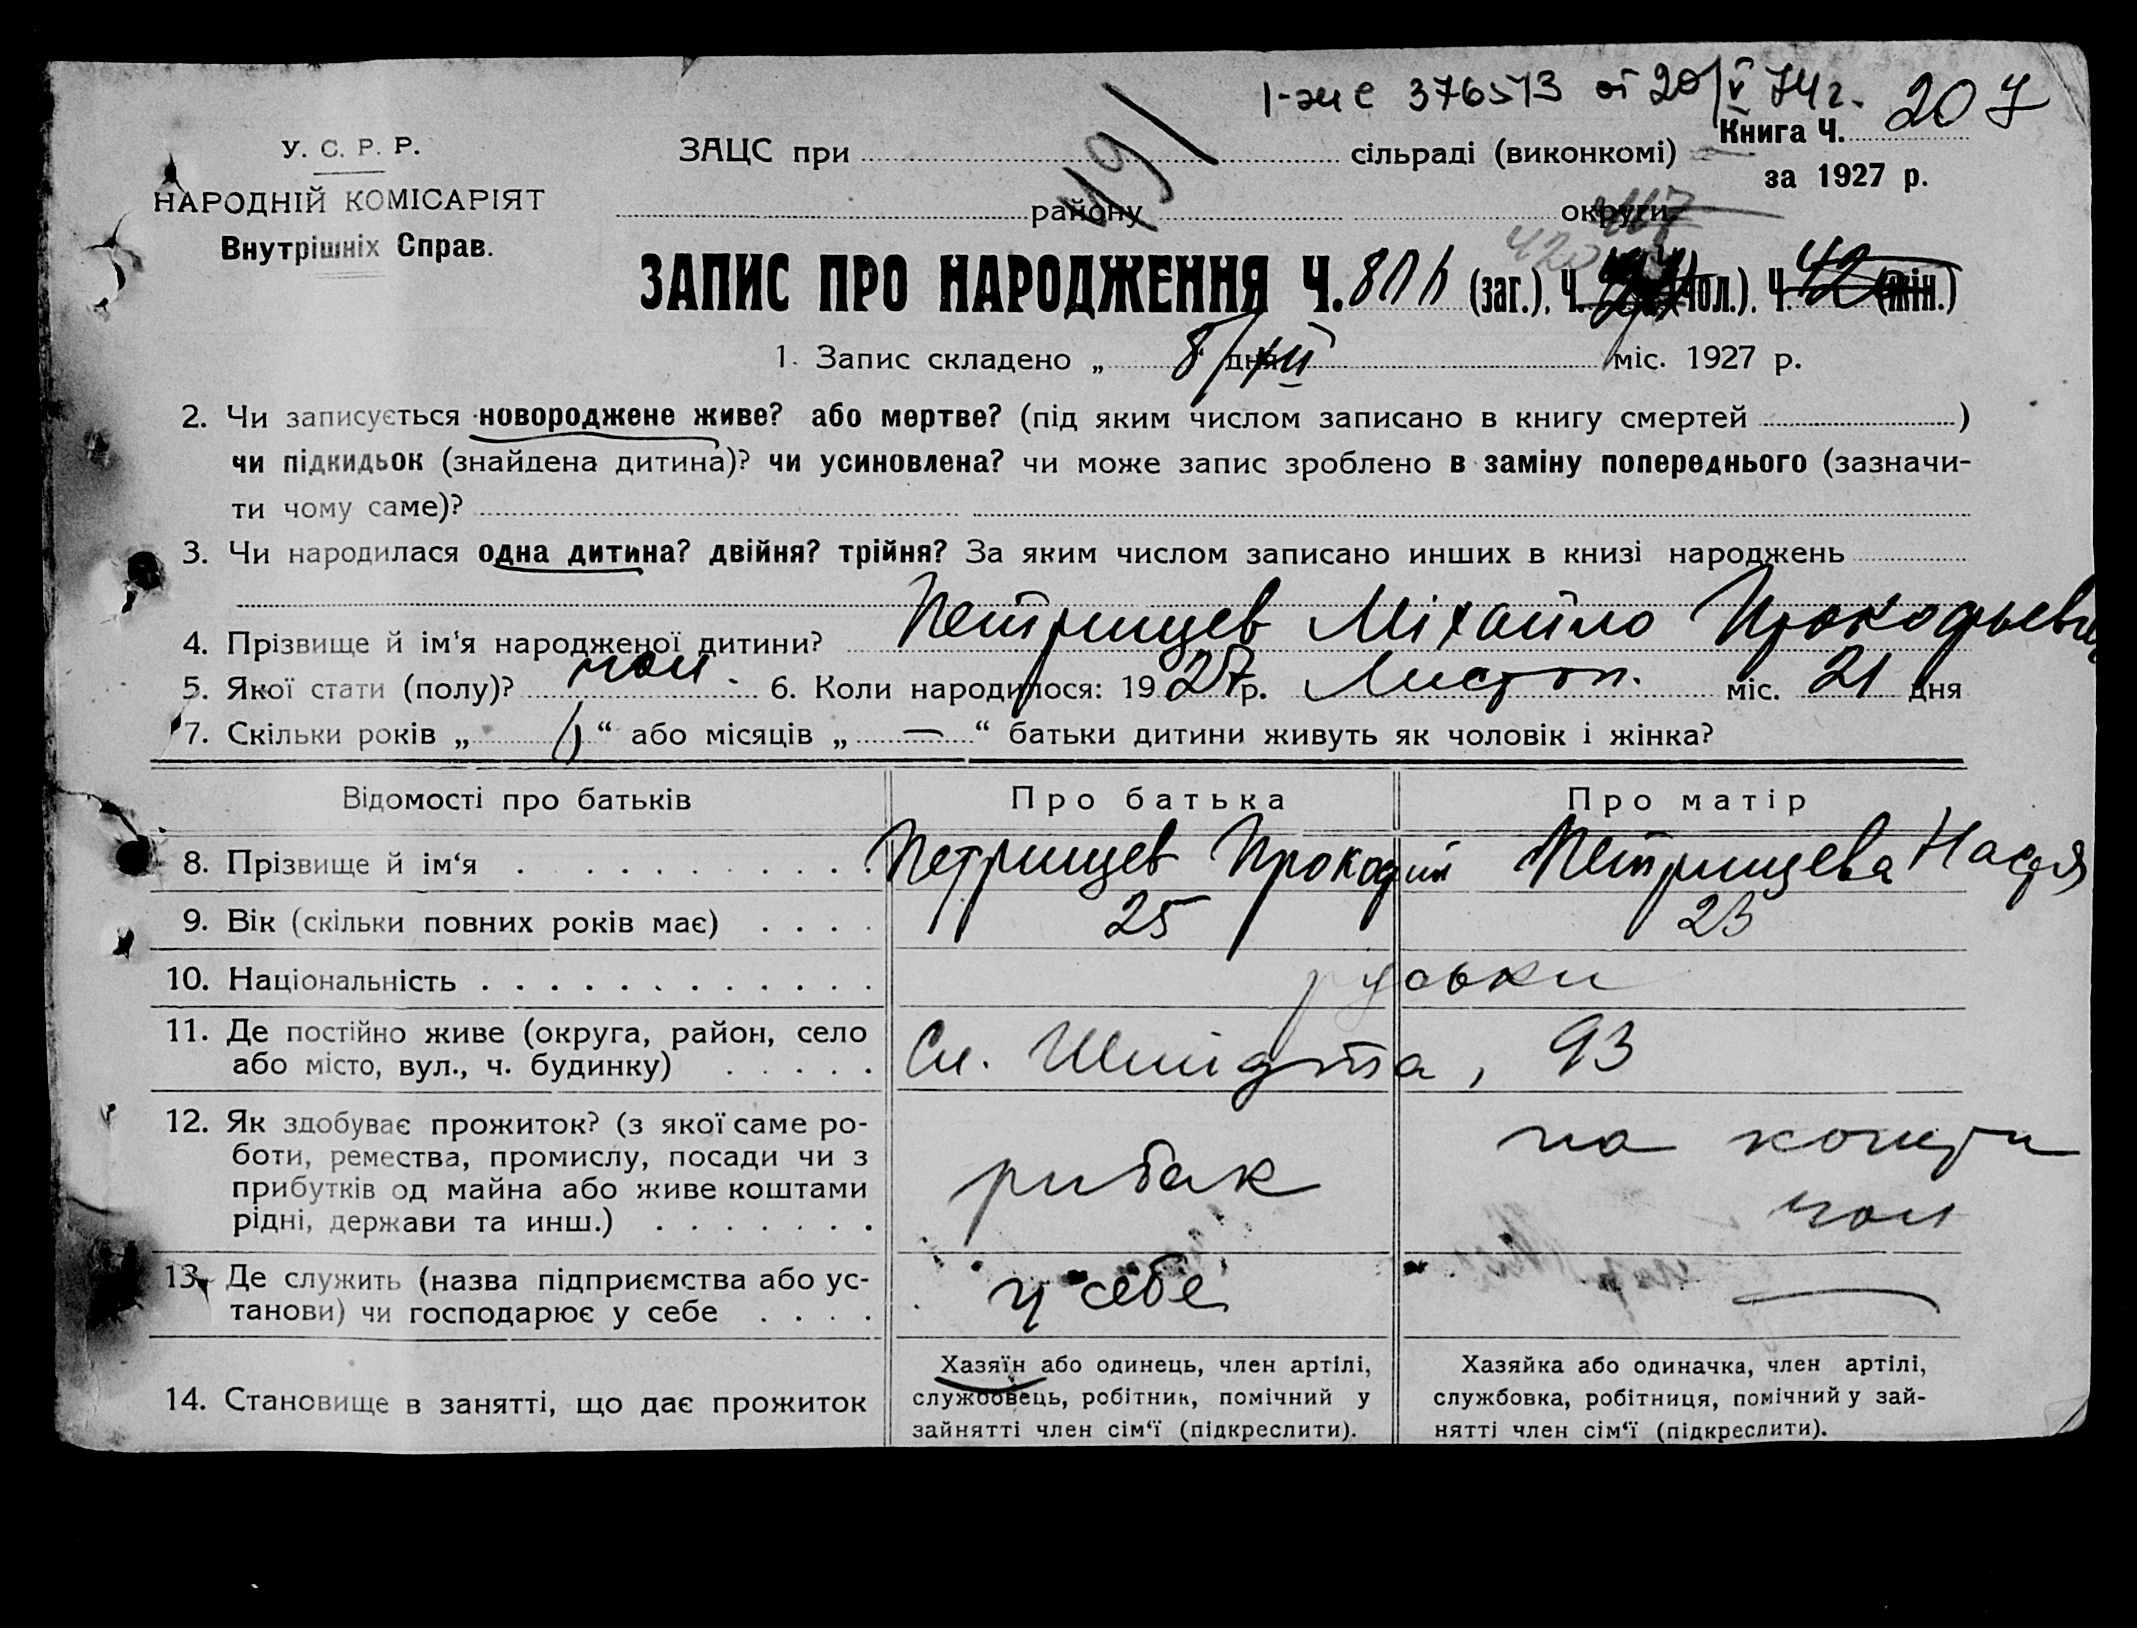 1-жс 376513 от 20/V 74 г. 207
У. С. Р. Р.
НАРОДНІЙ КОМІСАРІЯТ
Внутрішніх Справ.
491
ЗАЦС при сільраді (виконкомі)
Книга Ч.
за 1927 р.
району округи
417
420
ЗАПИС ПРО НАРОДЖЕННЯ Ч. (заг.). Ч. (чол.). Ч. 42 (жін.)
1. Запис складено „ 8/XII дня міс. 1927 р.
2. Чи записується новороджене живе? або мертве? (під яким числом записано в книгу смертей )
чи підкидьок (знайдена дитина)? чи усиновлена? чи може запис зроблено в заміну попереднього (зазначи-
ти чому саме)?
3. Чи народилася одна дитина? двійня? трійня? За яким числом записано инших в книзі народжень
4. Прізвище й ім‘я народженої дитини? Петрищев Міхайло Прокофьев
5. Якої стати (полу)? чол. 6. Коли народилося: 1927 р. Листоп. міс. 21 дня
7. Скільки років „ “ або місяців „ — “ батьки дитини живуть як чоловік і жінка?
Відомості про батьків Про батька Про матір
8. Прізвище й ім‘я Петрищев Прокофий Петрищева Настя
9. Вік (скільки повних років має) 25 23
10. Національність руськи
11. Де постійно живе (округа, район, село
або місто, вул., ч. будинку) Сл. Шмідта, 93
12. Як здобуває прожиток? (з якої саме ро-
боти, ремества, промислу, посади чи з
прибутків од майна або живе коштами
рідні, держави та инш.) рибак на кошти чол
13. Де служить (назва підприємства або ус-
танови) чи господарює у себе у себе —
14. Становище в занятті, що дає прожиток
Хазяїн або одинець, член артілі,
службовець, робітник, помічний у
зайнятті член сім‘ї (підкреслити).
Хазяйка або одиначка, член артілі,
службовка, робітниця, помічний у зай-
нятті член сім‘ї (підкреслити).